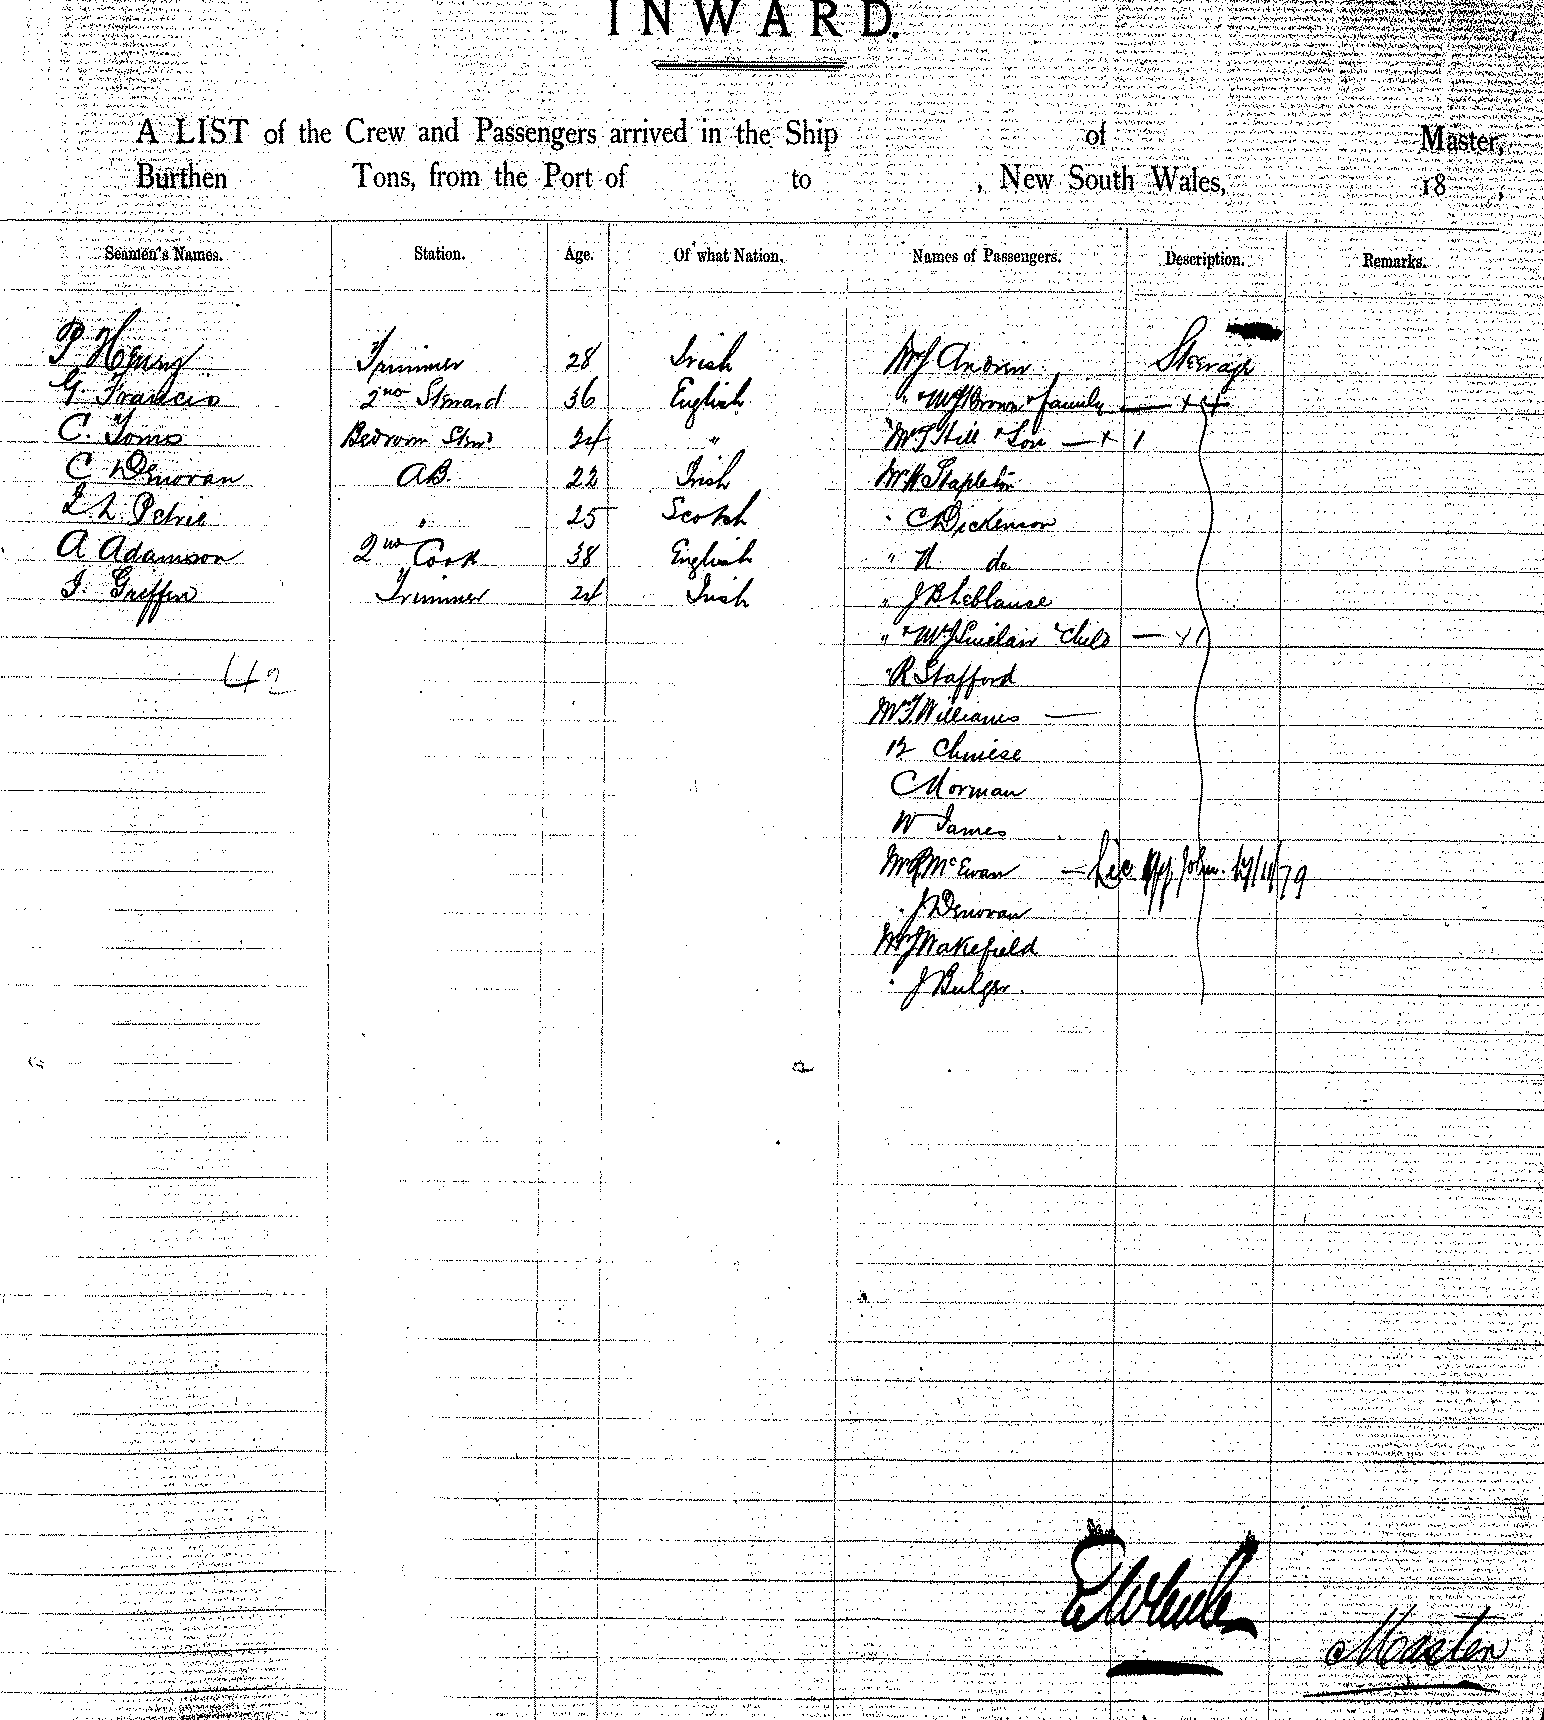 INWARD.
A LIST of the Crew and Passengers arrived in the Ship of Master,
Burthen Tons, from the Port of to , New South Wales, 18 ,
Seamen's Names. Station. Age. Of what Nation. Names of Passengers. Description. Remarks.
P Henry Trimmer 28 Irish Mr J Andrew Steerage
G. Francis 2nd Steward 36 English " " Mrs Brown & family — + 4
C. Toms Bedroom Stwd 24 " Mr T Hill & Son — + 1
C Donovan AB. 22 Irish Mr W Stapleton
Petrie " 25 Scotch " C Dickenson
A Adamson 2nd Cook 38 English " H do
J. Griffin Trimmer 24 Irish " J B Leblause
" & Mrs J Sinclair & Child — + 1
42
" R Stafford
Mr T Williams —
12 Chinese
C Morman
W James
McEwan —
" J Donovan
Mr J Wakefield
" J Bulger.
Master